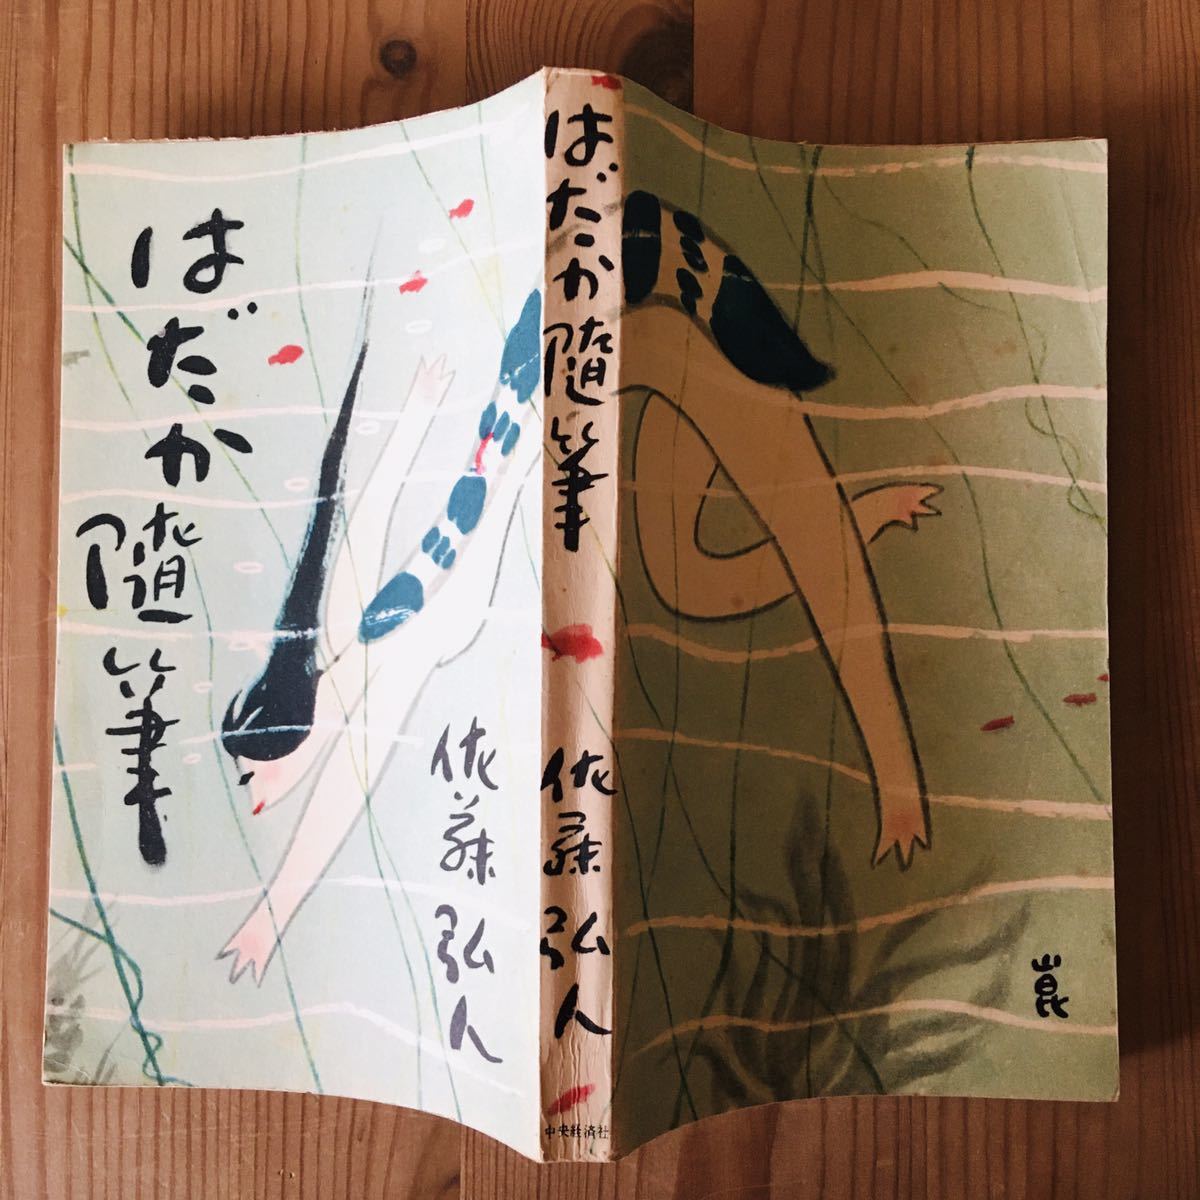 はだか随筆
佐藤弘人
はだか随筆
佐藤弘人
中央経済社
崑